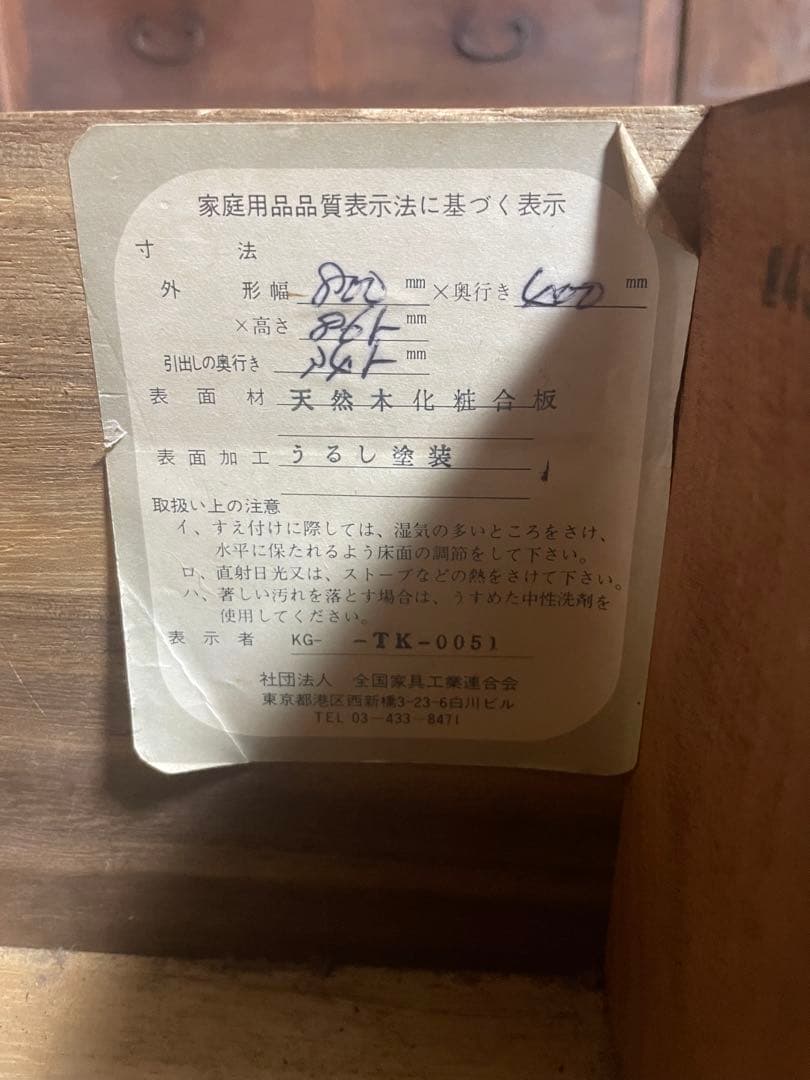 家庭用品品質表示法に基づく表示
寸法
外形幅 800 mm ×奥行き 400 mm
×高さ mm
引出しの奥行き mm
表面材 天然木化粧合板
表面加工 うるし塗装
取扱い上の注意
イ、すえ付けに際しては、湿気の多いところをさけ、
水平に保たれるよう床面の調節をして下さい。
ロ、直射日光又は、ストーブなどの熱をさけて下さい。
ハ、著しい汚れを落とす場合は、うすめた中性洗剤を
使用してください。
表示者 KG- -TK-0051
社団法人 全国家具工業連合会
東京都港区西新橋3-23-6白川ビル
TEL 03-433-8471